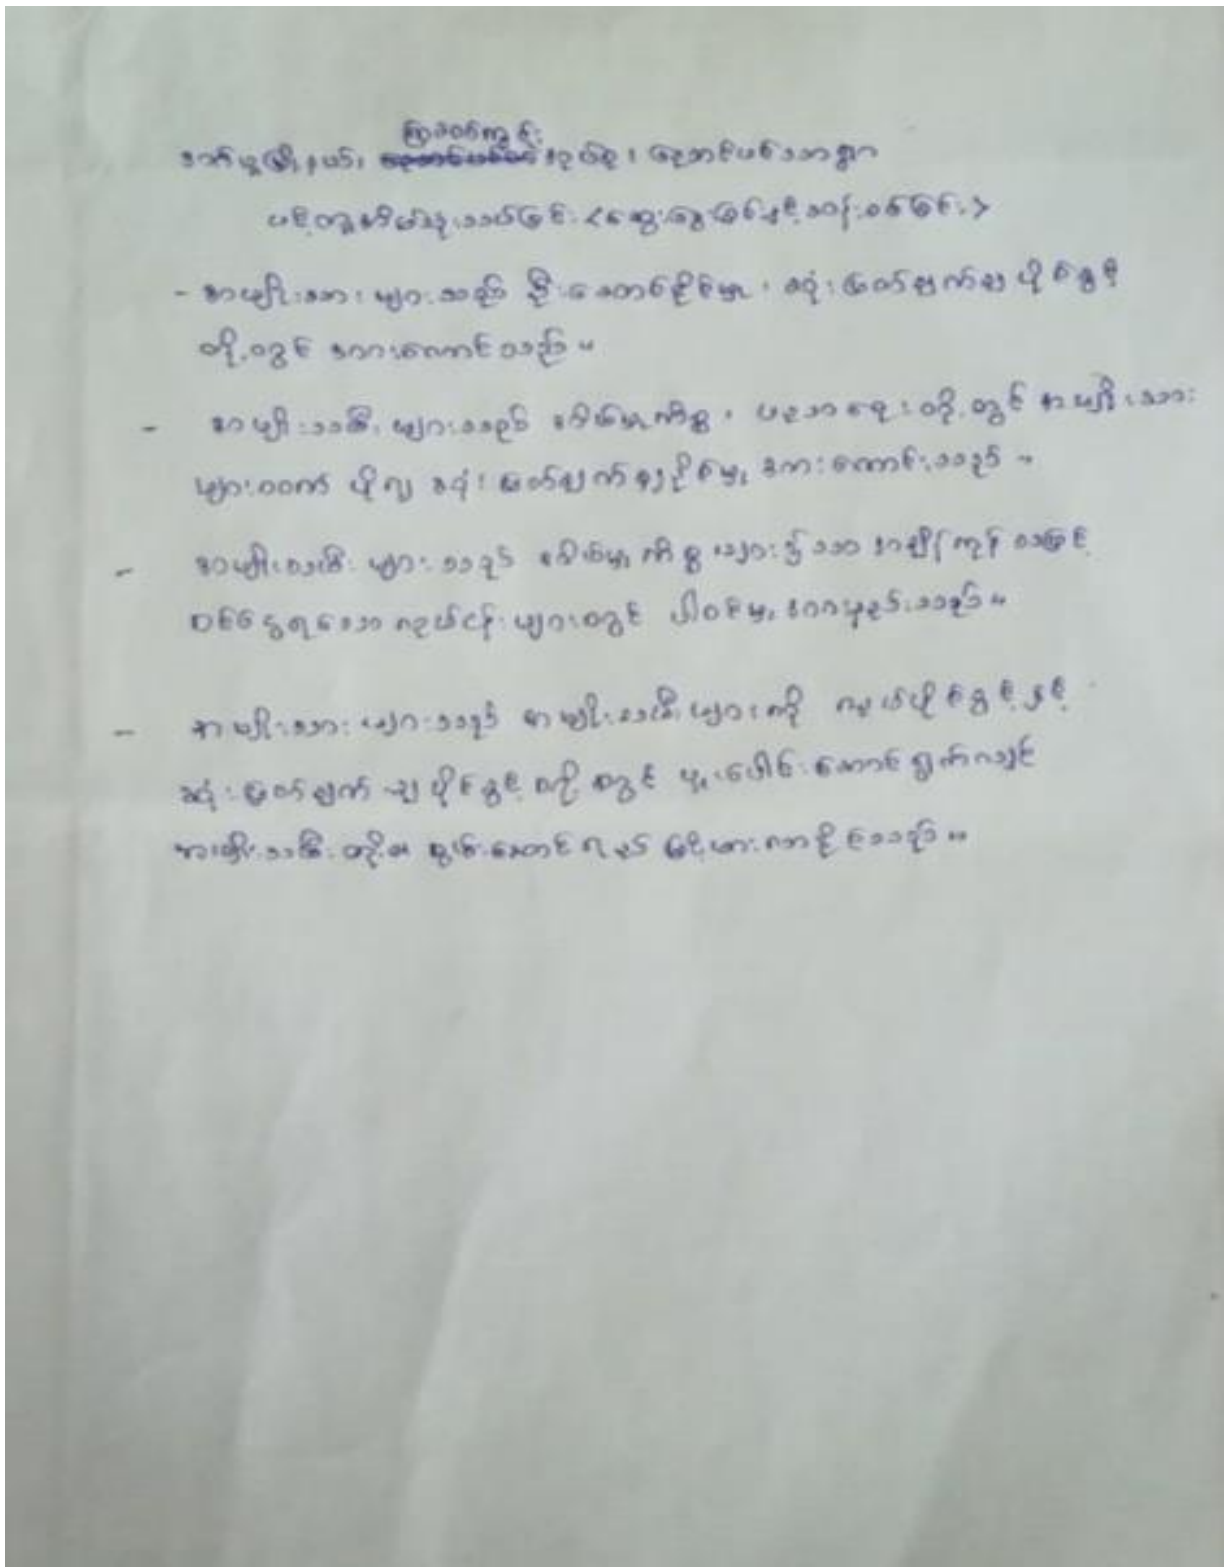 ကြာခတ်ကွင်း
မြို့နယ်၊ အုပ်စု၊ ရွာ
<ဆွေးနွေးခြင်းနှင့်ဆန်းစစ်ခြင်း>
- အမျိုးသားများသည် ဦးဆောင်နိုင်မှု၊ ဆုံးဖြတ်ချက်ချပိုင်ခွင့်
တို့တွင် အားကောင်းသည်။
- အမျိုးသမီးများသည် အိမ်မှုကိစ္စ၊ ပညာရေးတို့တွင် အမျိုးသား
များထက် ပို၍ ဆုံးဖြတ်ချက်ချနိုင်မှု အားကောင်းသည်။
- အမျိုးသမီးများသည် အိမ်မှုကိစ္စများ၌သာ အချိန်ကုန်သဖြင့်
ဝင်ငွေရသော လုပ်ငန်းများတွင် ပါဝင်မှု အားနည်းသည်။
- အမျိုးသားများသည် အမျိုးသမီးများကို လုပ်ပိုင်ခွင့်နှင့်
ဆုံးဖြတ်ချက်ချပိုင်ခွင့်တို့တွင် ပူးပေါင်းဆောင်ရွက်လျှင်
အမျိုးသမီးတို့၏ စွမ်းဆောင်ရည် မြင့်မားလာနိုင်သည်။